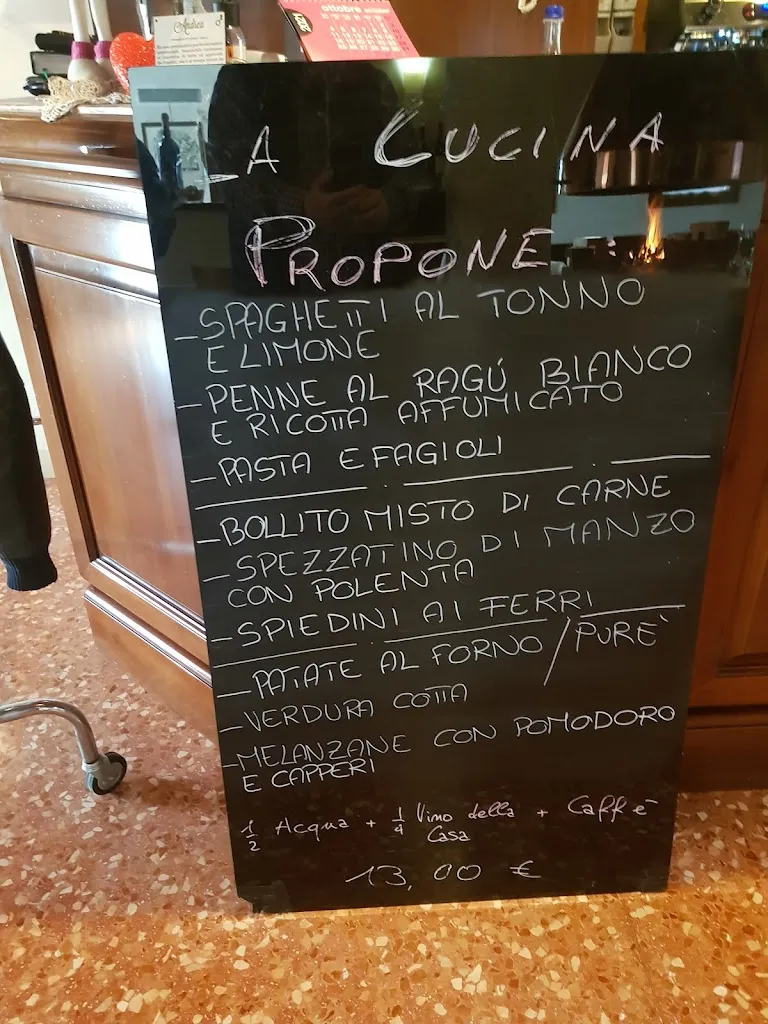 Andrea
ottobre
LA CUCINA
PROPONE:
-SPAGHETTI AL TONNO
E LIMONE
-PENNE AL RAGÚ BIANCO
E RICOTTA AFFUMICATO
-PASTA E FAGIOLI
-BOLLITO MISTO DI CARNE
-SPEZZATINO DI MANZO
CON POLENTA
-SPIEDINI AI FERRI
-PATATE AL FORNO / PURE'
-VERDURA COTTA
-MELANZANE CON POMODORO
E CAPPERI
1/2 Acqua + 1/4 Vino della + Caffè
Casa
13,00 €